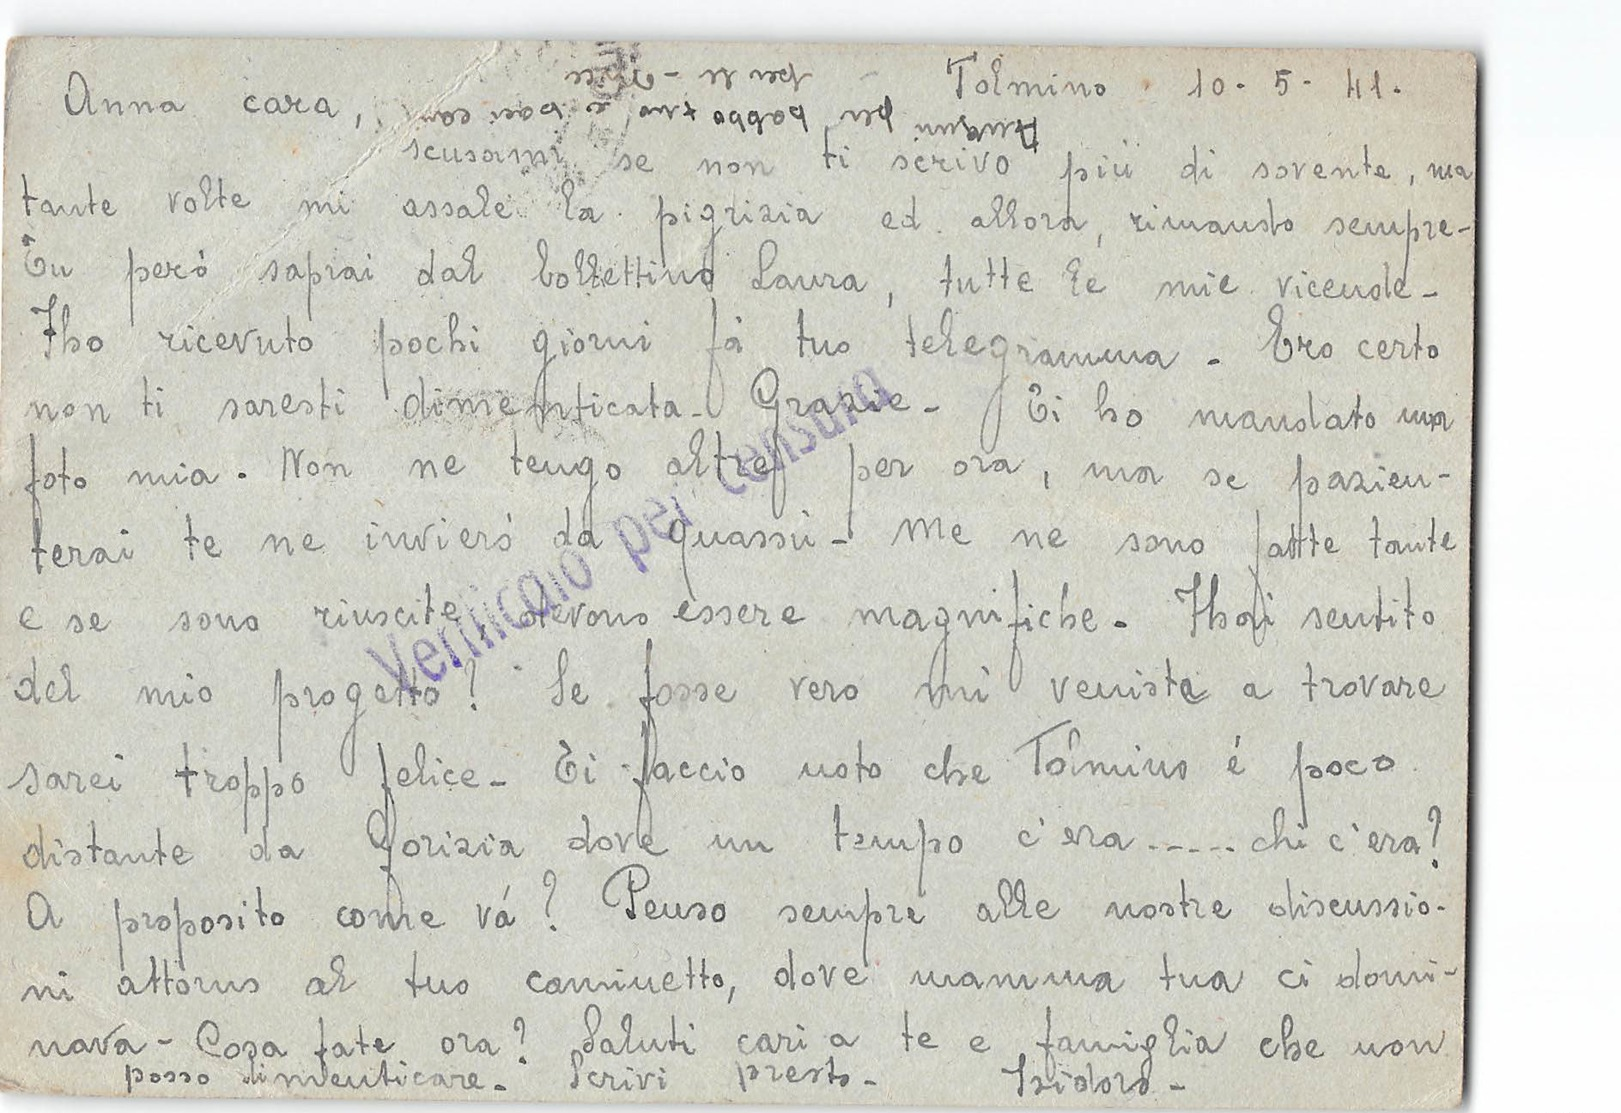 Tolmino 10-5-41.
Anna cara,
scusami se non ti scrivo più di sovente, ma
tante volte mi assale la pigrizia ed allora, rimando sempre-
Tu però saprai dal bollettino Laura, tutte le mie vicende-
Ho ricevuto pochi giorni fà tuo telegramma - Ero certo
non ti saresti dimenticata- Grazie- Ti ho mandato una
foto mia. Non ne tengo altre per ora, ma se pazien-
terai te ne invierò da quassù- Me ne sono fatte tante
e se sono riuscite, devono essere magnifiche- Hai sentito
del mio progetto? Se fosse vero mi venista a trovare
sarei troppo felice- Ti faccio noto che Tolmino é poco
distante da Gorizia dove un tempo c'era ..... chi c'era?
A proposito come và? Penso sempre alle nostre discussio-
ni attorno al tuo caminetto, dove mamma tua ci domi-
nava- Cosa fate ora? Saluti cari a te e famiglia che non
posso dimenticare- Scrivi presto- Isidoro-
Auguri per babbo tuo, e
per te -
Verificato per censura